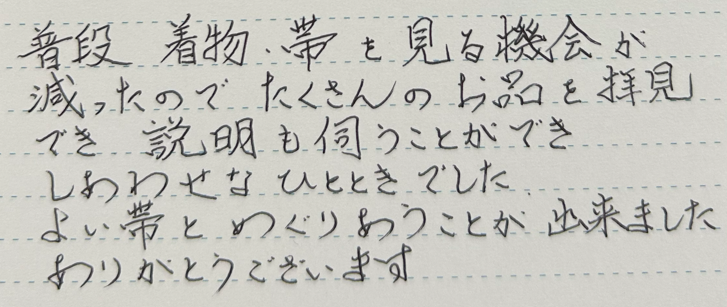 普段 着物、帯を見る機会が
減ったので たくさんのお品を拝見
でき 説明も伺うことができ
しあわせなひとときでした
よい帯とめぐりあうことが出来ました
ありがとうございます